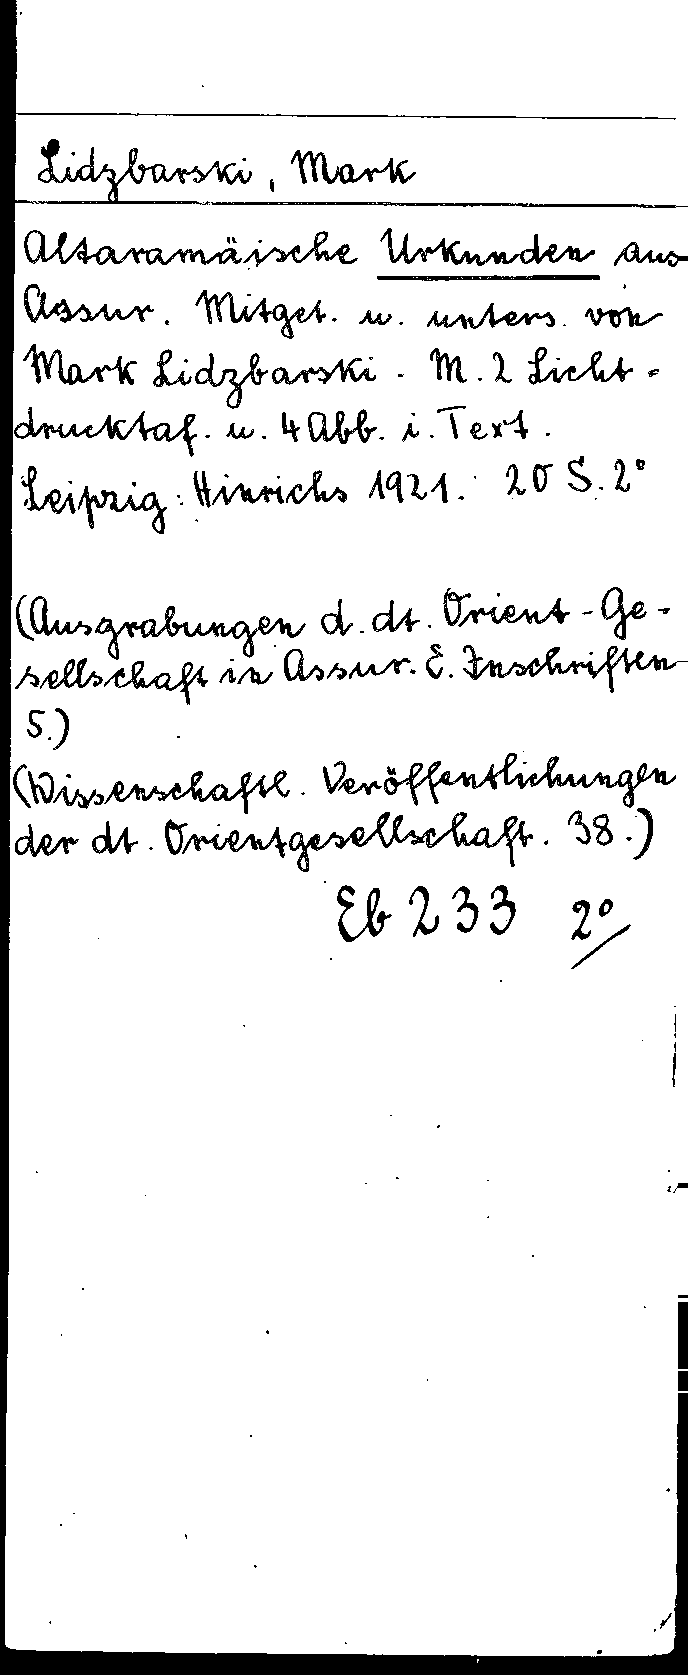 Lidzbarski, Mark
Altaramäische Urkunden aus
Assur. Mitget. u. unters. von
Mark Lidzbarski. M. 2 Licht-
drucktaf. u. 4 Abb. i. Text.
Leipzig: Hinrichs 1921. 20 S. 2°
(Ausgrabungen d. dt. Orient-Ge-
sellschaft in Assur. E. Inschriften
5.)
(Wissenschaftl. Veröffentlichungen
der dt. Orientgesellschaft. 38.)
Eb 233 2°